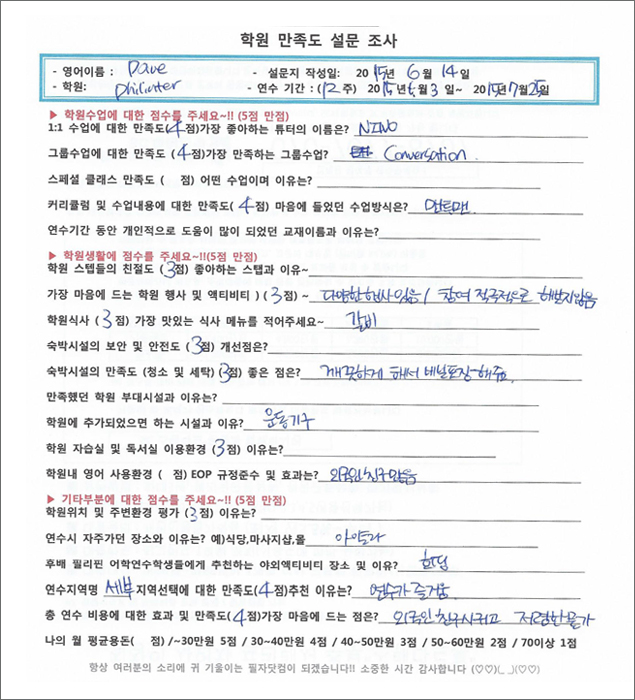 학원 만족도 설문 조사
- 영어이름 : Dave - 설문지 작성일: 2015년 6월 14일
- 학원: Philinter - 연수 기간 : (12주) 2015년 5월 3일~ 2015년 7월 25일
▶ 학원수업에 대한 점수를 주세요~!! (5점 만점)
1:1 수업에 대한 만족도(4점)가장 좋아하는 튜터의 이름은? NINO
그룹수업에 대한 만족도(4점)가장 만족하는 그룹수업? Conversation.
스페셜 클래스 만족도 ( 점) 어떤 수업이며 이유는?
커리큘럼 및 수업내용에 대한 만족도(4점) 마음에 들었던 수업방식은? 맨투맨.
연수기간 동안 개인적으로 도움이 많이 되었던 교재이름과 이유는?
▶ 학원생활에 점수를 주세요~!!(5점 만점)
학원 스텝들의 친절도 (3점) 좋아하는 스탭과 이유~
가장 마음에 드는 학원 행사 및 액티비티 ) (3점) ~ 다양한 행사 있음 / 참여 적극적으로 해본지않음
학원식사 (3점) 가장 맛있는 식사 메뉴를 적어주세요~ 갈비
숙박시설의 보안 및 안전도 (3점) 개선점은?
숙박시설의 만족도 (청소 및 세탁)(3점) 좋은 점은? 깨끗하게 해서 비닐포장 해줘요.
만족했던 학원 부대시설과 이유는?
학원에 추가되었으면 하는 시설과 이유? 운동기구
학원 자습실 및 독서실 이용환경 (3점) 이유는?
학원내 영어 사용환경 ( 점) EOP 규정준수 및 효과는? 외국인 친구 많음
▶ 기타부분에 대한 점수를 주세요~!! (5점 만점)
학원위치 및 주변환경 평가 (3점) 이유는?
연수시 자주가던 장소와 이유는? 예)식당,마사지샵,몰 아얄라
후배 필리핀 어학연수학생들에게 추천하는 야외액티비티 장소 및 이유? 호핑
연수지역명 세부 지역선택에 대한 만족도(4점)추천 이유는? 연수가 즐거움
총 연수 비용에 대한 효과 및 만족도(4점)가장 마음에 드는 점은? 외국인 친구 사귀고 저렴한 물가
나의 월 평균용돈( 점) /~30만원 5점 / 30~40만원 4점 / 40~50만원 3점 / 50~60만원 2점 / 70이상 1점
항상 여러분의 소리에 귀 기울이는 필자닷컴이 되겠습니다!! 소중한 시간 감사합니다 (♡♡)(_ _)(♡♡)